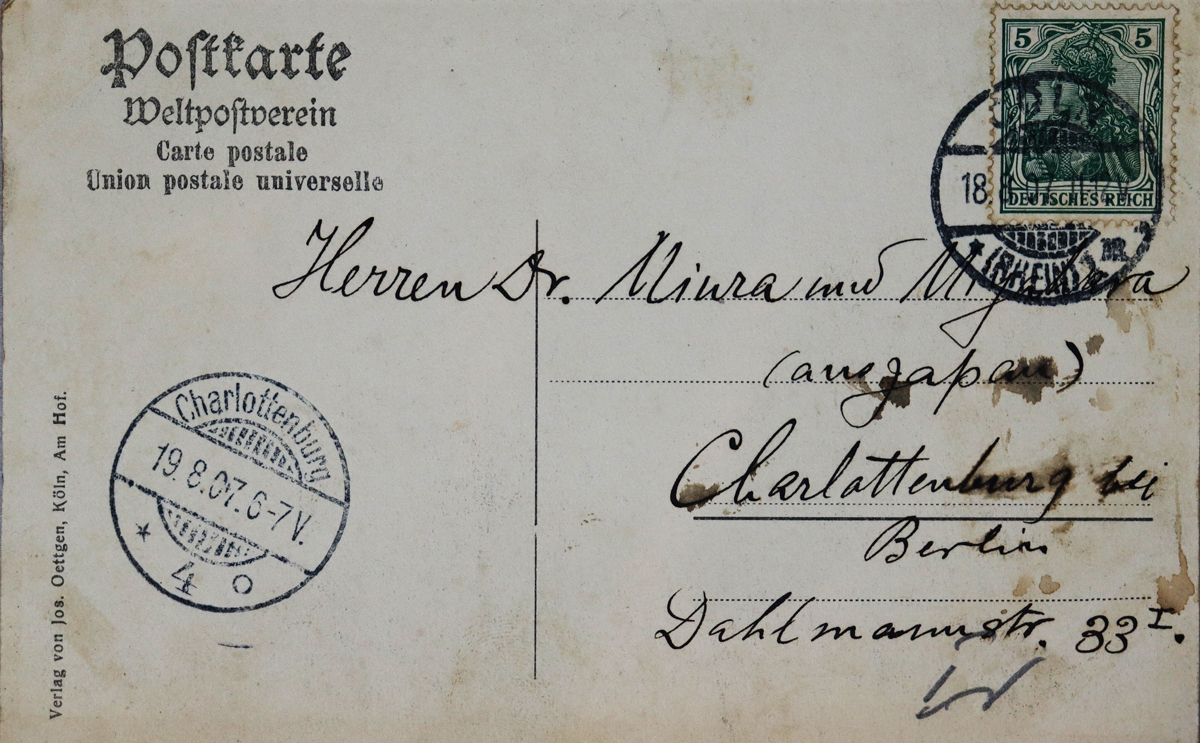 Postkarte
Weltpostverein
Carte postale
Union postale universelle
5 5
DEUTSCHES REICH
CÖLN
18.8.07
* (RHEIN) 1 m
Herren Dr. Miura und
(aus Japan)
Charlottenburg bei
Berlin
Dahlmannstr. 33 I.
Charlottenburg
19.8.07.6-7V.
* 4 o
Verlag von Jos. Oettgen, Köln, Am Hof.